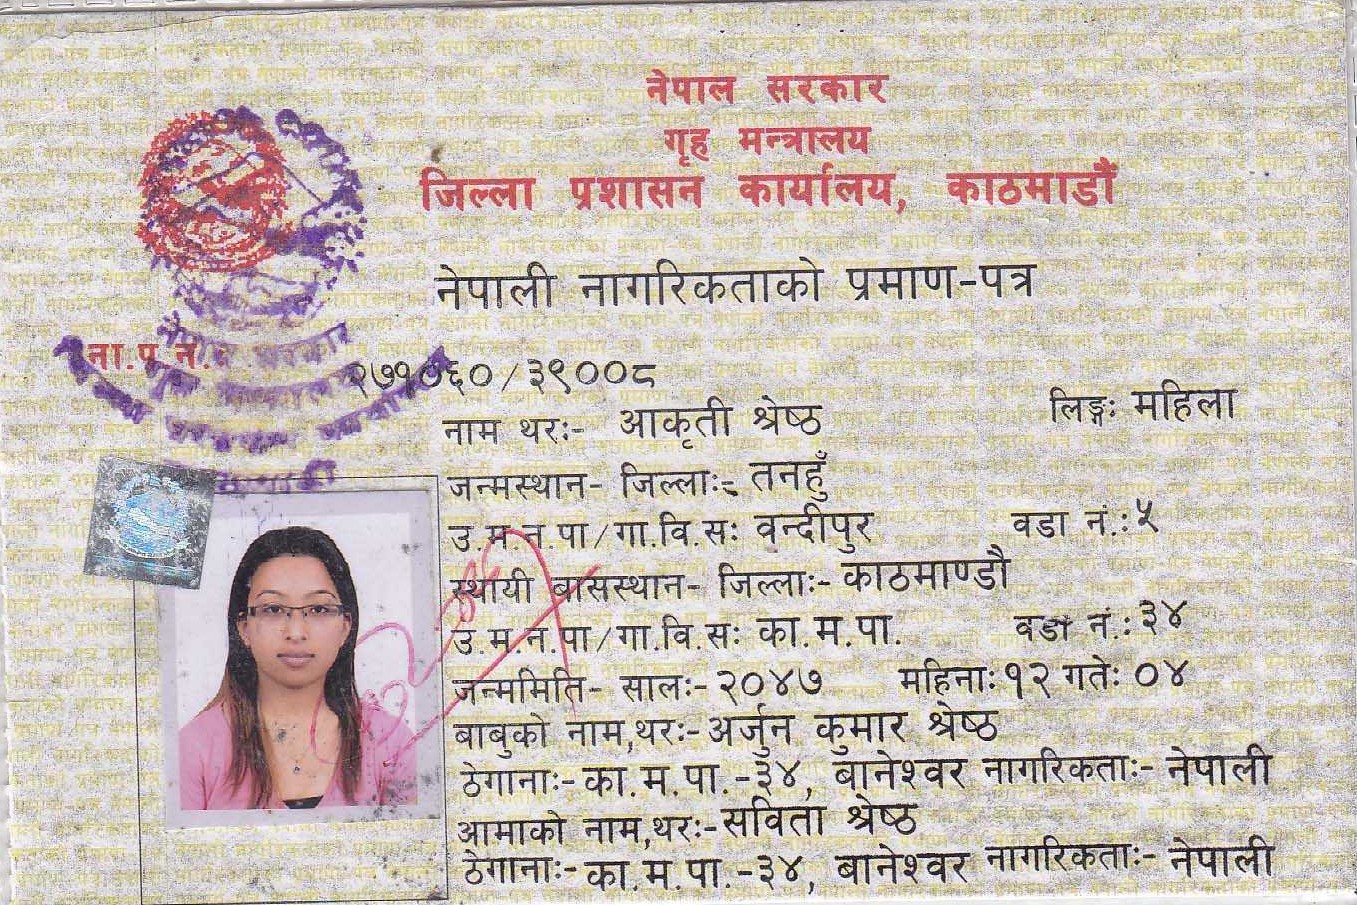 नेपाल सरकार
गृह मन्त्रालय
जिल्ला प्रशासन कार्यालय, काठमाडौं
नेपाली नागरिकताको प्रमाण-पत्र
ना.प्र.नं.
२७१०६०/३९००८
नाम थरः- आकृती श्रेष्ठ लिङ्गः महिला
जन्मस्थान- जिल्लाः- तनहुँ
उ.म.न.पा/गा.वि.सः वन्दीपुर वडा नं.ः५
स्थायी बासस्थान- जिल्लाः- काठमाण्डौ
उ.म.न.पा/गा.वि.सः का.म.पा. वडा नं.ः३४
जन्ममिति- सालः- २०४७ महिनाः१२ गतेः ०४
बाबुको नाम,थरः- अर्जुन कुमार श्रेष्ठ
ठेगानाः- का.म.पा.-३४, बानेश्वर नागरिकताः- नेपाली
आमाको नाम,थरः- सविता श्रेष्ठ
ठेगानाः- का.म.पा.-३४, बानेश्वर नागरिकताः- नेपाली